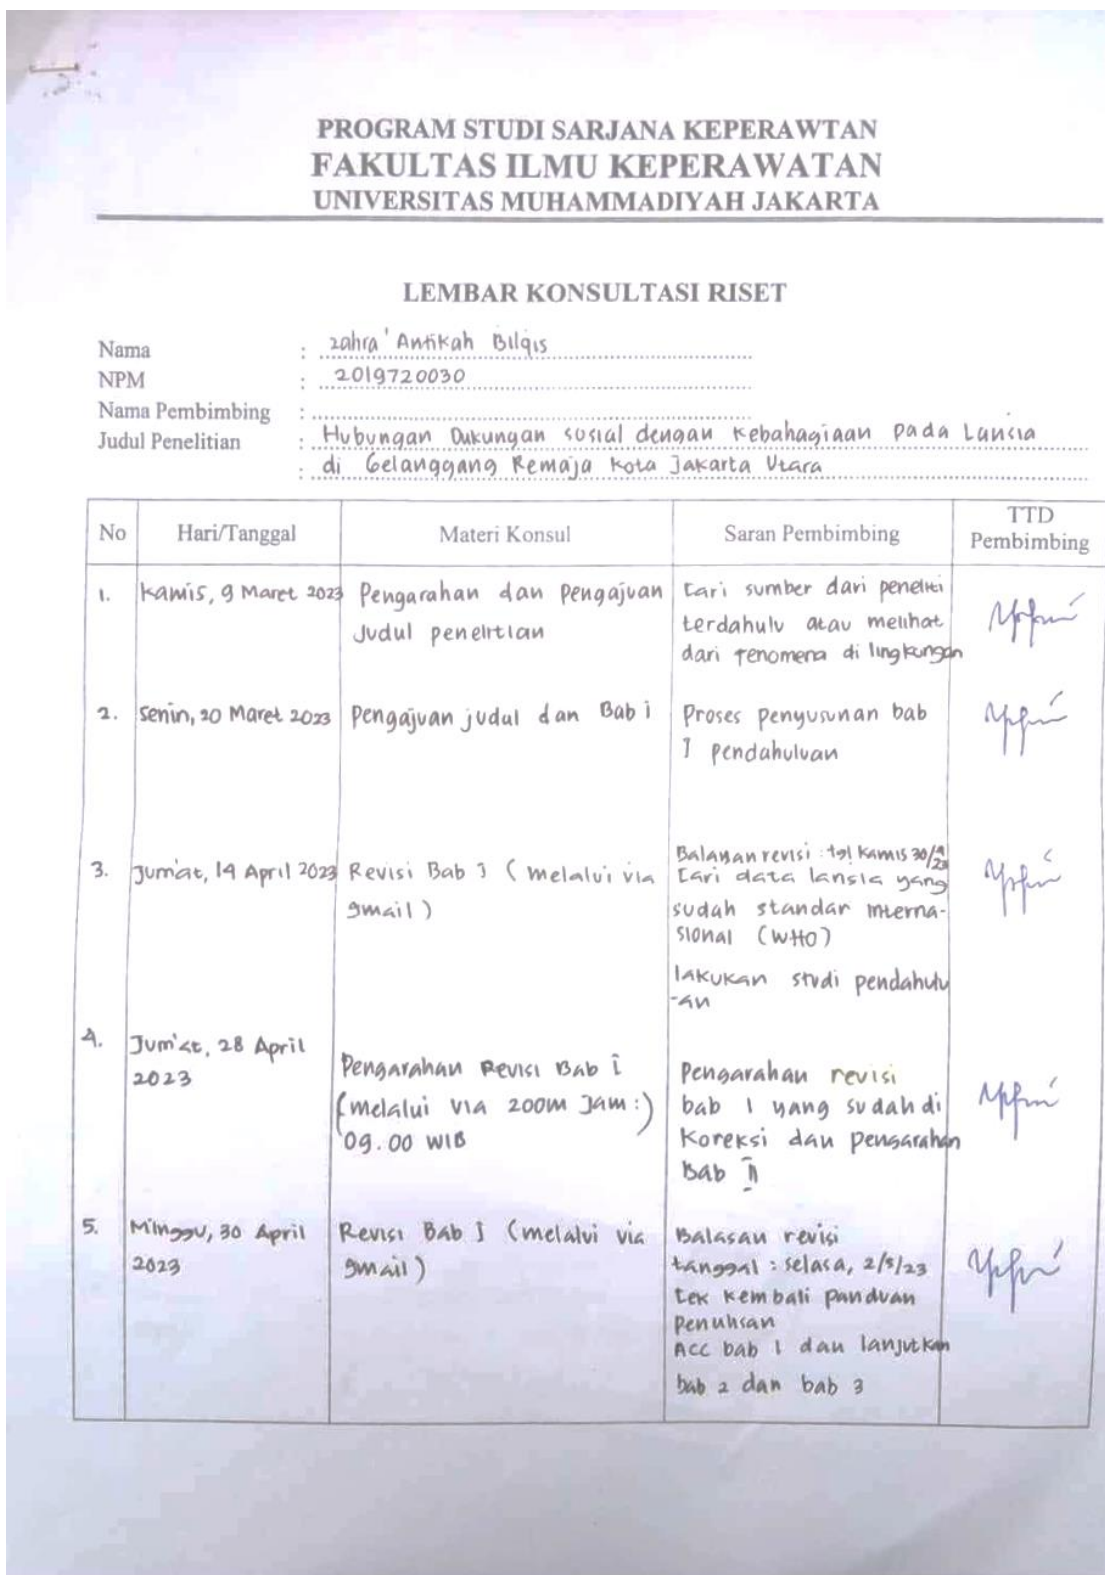 PROGRAM STUDI SARJANA KEPERAWTAN
FAKULTAS ILMU KEPERAWATAN
UNIVERSITAS MUHAMMADIYAH JAKARTA
LEMBAR KONSULTASI RISET
Nama : Zahra' Antikah Bilqis
NPM : 2019720030
Nama Pembimbing :
Judul Penelitian : Hubungan Dukungan sosial dengan Kebahagiaan pada Lansia
: di Gelanggang Remaja Kota Jakarta Utara
No Hari/Tanggal Materi Konsul Saran Pembimbing TTD Pembimbing
1. Kamis, 9 Maret 2023 Pengarahan dan Pengajuan Cari sumber dari peneliti
Judul penelitian terdahulu atau melihat
dari fenomena di lingkungan
2. Senin, 20 Maret 2023 Pengajuan judul dan Bab i Proses penyusunan bab
I pendahuluan
3. Jum'at, 14 April 2023 Revisi Bab I (melalui via Balasan revisi : tgl Kamis 30/4/23
gmail) Cari data lansia yang
sudah standar interna-
sional (WHO)
lakukan studi pendahulu
-an
4. Jum'at, 28 April Pengarahan Revisi Bab i Pengarahan revisi
2023 (melalui via zoom Jam :) bab 1 yang sudah di
09.00 WIB Koreksi dan pengarahan
Bab II
5. Minggu, 30 April Revisi Bab I (melalui via Balasan revisi
2023 gmail) tanggal : selasa, 2/5/23
Cek kembali panduan
Penulisan
ACC bab 1 dan lanjutkan
bab 2 dan bab 3